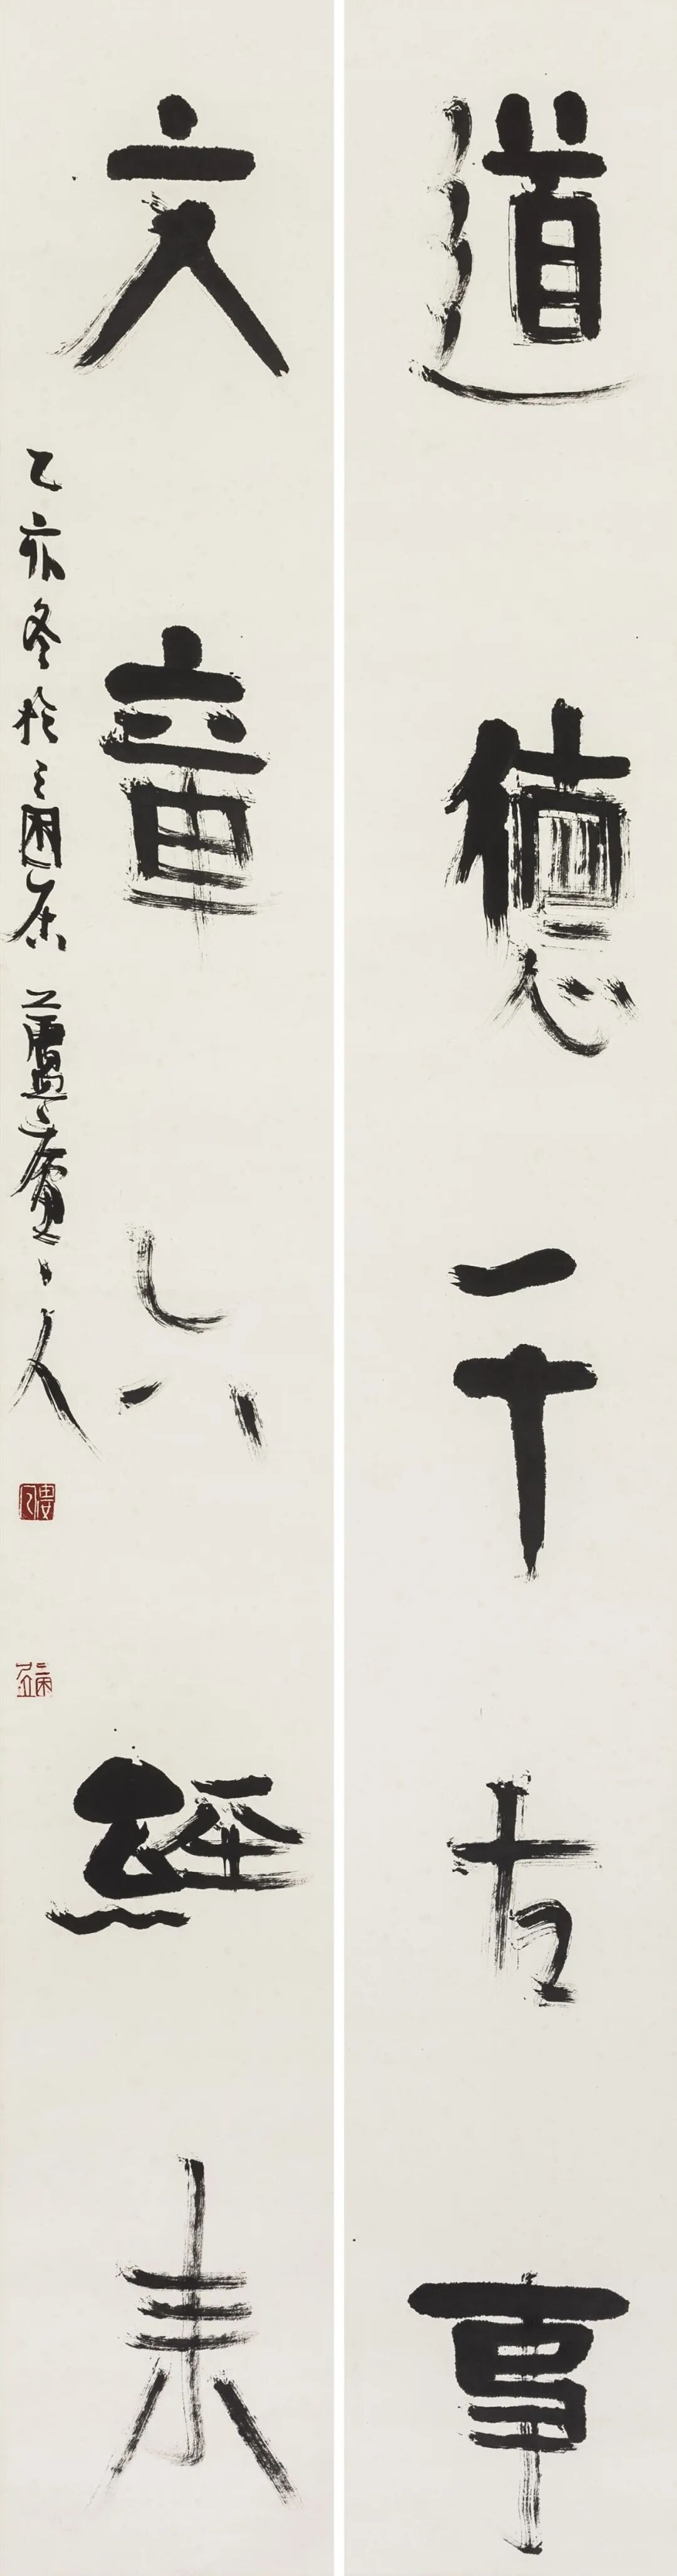 道德千古事
文章六經來
乙亥冬於三困居 人